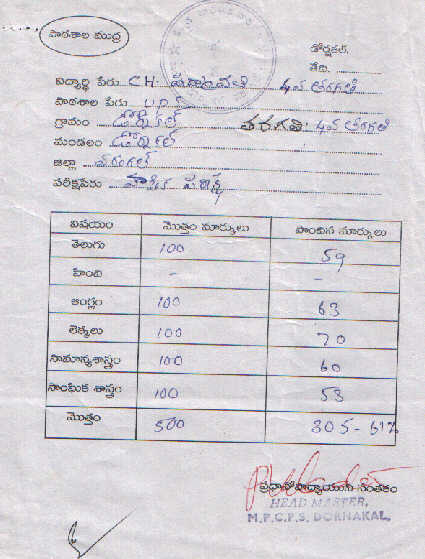 పాఠశాల ముద్ర
డోర్నకల్,
తేది.
విద్యార్థి పేరు CH. 4వ తరగతి
పాఠశాల పేరు U.P.S
గ్రామం డోర్నకల్ తరగతి: 4వ తరగతి
మండలం డోర్నకల్
జిల్లా వరంగల్
పరీక్షపేరు
విషయం మొత్తం మార్కులు పొందిన మార్కులు
తెలుగు 100 59
హింది - -
ఆంగ్లం 100 63
లెక్కలు 100 70
సామాన్యశాస్త్రం 100 60
సాంఘిక శాస్త్రం 100 53
మొత్తం 500 305 - 61%
ప్రధానోపాధ్యాయుని సంతకం
HEAD MASTER,
M.P.C.P.S. DORNAKAL,